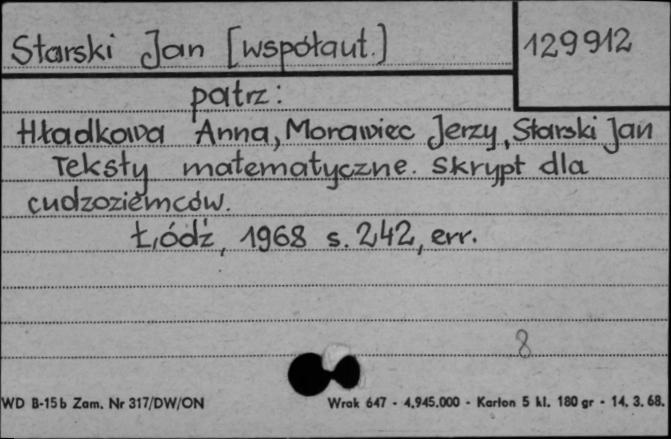 Starski Jan [współaut.]
129912
patrz:
Hładkowa Anna, Morawiec Jerzy, Starski Jan
Teksty matematyczne. Skrypt dla
cudzoziemców.
Łódź, 1968 s. 242, err.
8
WD B-15b Zam. Nr 317/DW/ON
Wrak 647 - 4.945.000 - Karton 5 kl. 180 gr - 14. 3. 68.